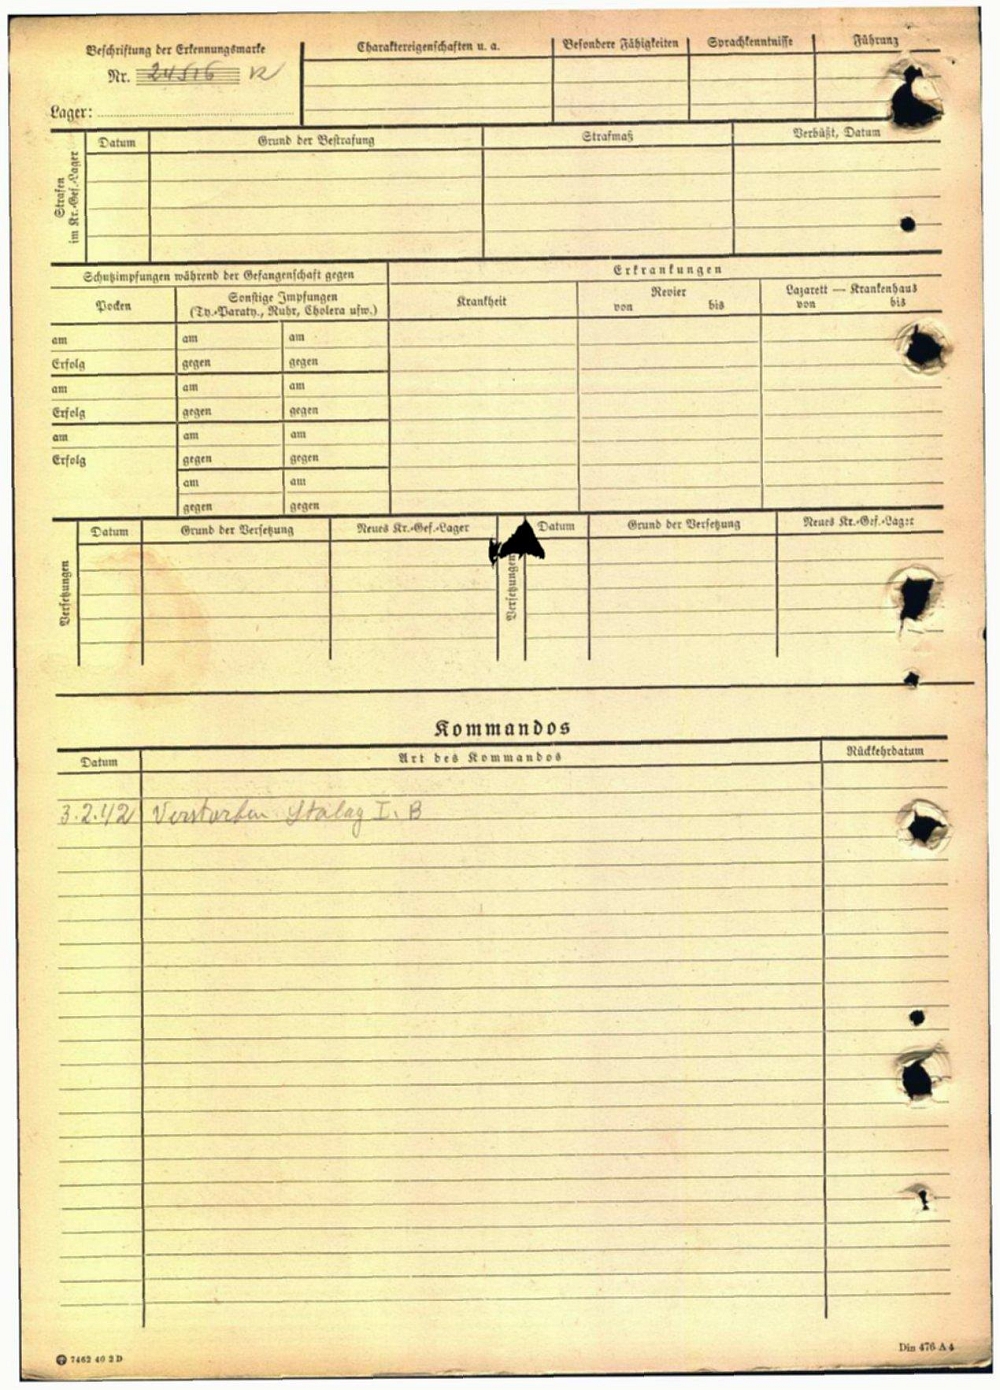 Beschriftung der Erkennungsmarke
Nr. 24516
Lager:
Charaktereigenschaften u. a.
Besondere Fähigkeiten
Sprachkenntnisse
Führung
Strafen im Kr.-Gef.-Lager
Datum
Grund der Bestrafung
Strafmaß
Verbüßt, Datum
Schutzimpfungen während der Gefangenschaft gegen
Erkrankungen
Pocken
Sonstige Impfungen
(Ty.-Paraty., Ruhr, Cholera usw.)
Krankheit
Revier
von bis
Lazarett — Krankenhaus
von bis
am am am
Erfolg gegen gegen
am am am
Erfolg gegen gegen
am am am
Erfolg gegen gegen
am am
gegen gegen
Versetzungen
Datum
Grund der Versetzung
Neues Kr.-Gef.-Lager
Versetzungen
Datum
Grund der Versetzung
Neues Kr.-Gef.-Lager
Kommandos
Datum
Art des Kommandos
Rückkehrdatum
3.2.42 Verstorben Stalag I. B
7462 40 2 D
Din 476 A 4